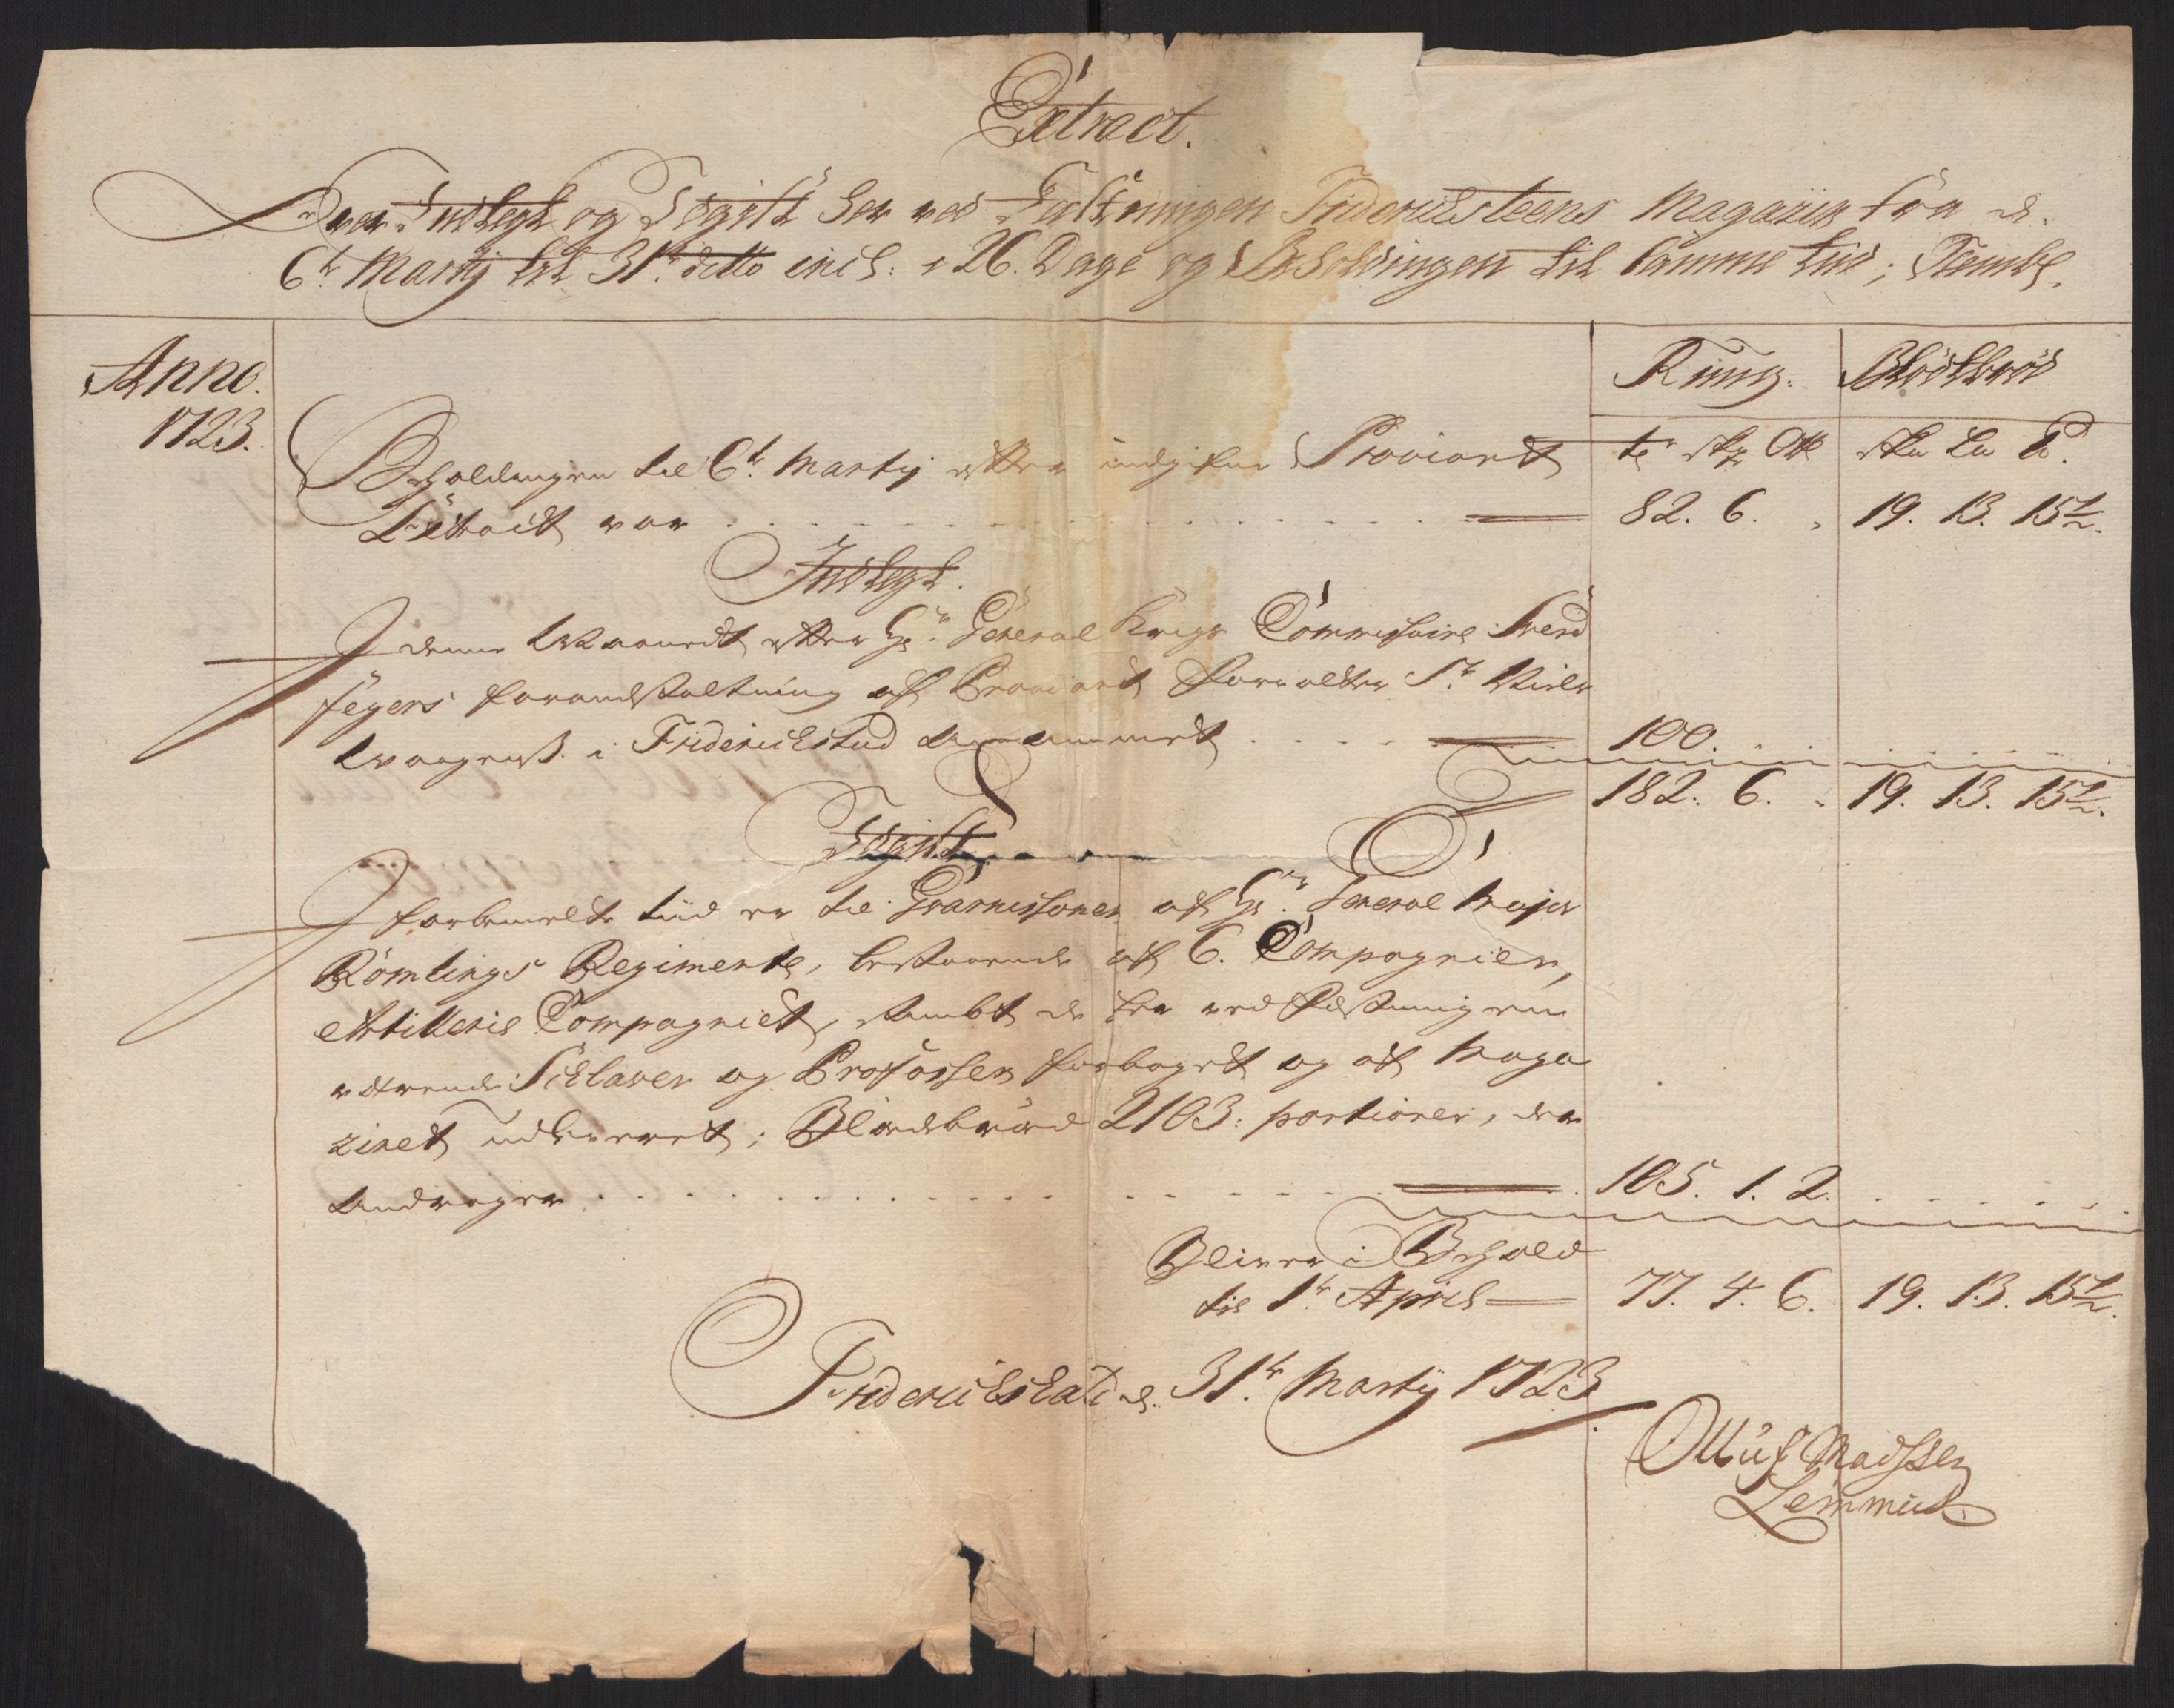 Extract.
Over Indlegt og Udgift her ved Fæstningen Friderichsteens Magazin fra d.
6te Martij till 31te ditto incl: i 26. Dage og Beholdningen till samme tiid; Nembl.
Anno.
1723.
Rüug. Blödbröd
Beholdingen til 6te Martij efter indgifne Proviant
Extract var
te skp
82. 6. 19. 13. 15½.
Indlegt.
I denne Maanedt efter Hr. General Krigs Commissaire Swerd
fegers foranstaltning af Proviant Forvalter Sr. Niels
i Friderichstad annammet
100.
182. 6. 19. 13. 15½.
Udgift
I forbemelte tiid er til Guarnissonen af Hr. General Major
Römlings Regimente, bestaaende af 6. Compagnier,
Artillerie Compagniet, sambt de her ved Fæstningen
værende Sclaver og Profosser forbaget og af Maga
zinet udleveret; Blödbröd 2103: portioner, der
andrager
105. 1. 2.
Bliver i Behold
til 1te April
77. 4. 6. 19. 13. 15½.
Friderichshald d. 31te Martij 1723
Olluf Madssen
Lemmich